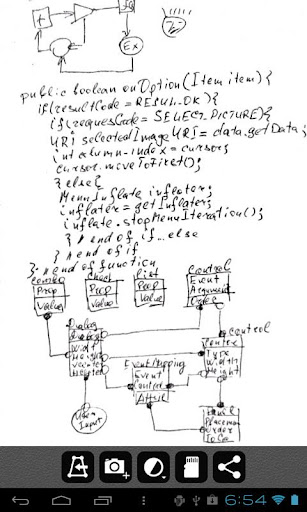 +
Ex
public boolean onOption(Item item){
if(resultCode = RESUL-OK){
if(requesCode = SELECT-PICTURE){
URI selectedImageURI = data.getData;
int column-index = cursor;
cursor.moveToFirst();
} else{
MenuInflate inflater;
inflater = getInflater;
inflate.stopMenuIteration();
} // end of if...else
} // end of if
} // end of function
combo
Prop
Value
check
Prop
Value
List
Prop
Value
Control
Event
Argument
Order
Dialog
Width
Height
Control
Context
Type
Width
Height
Event Mapping
Event
Control
Attrib
User
Input
Placemen
Order
6:54